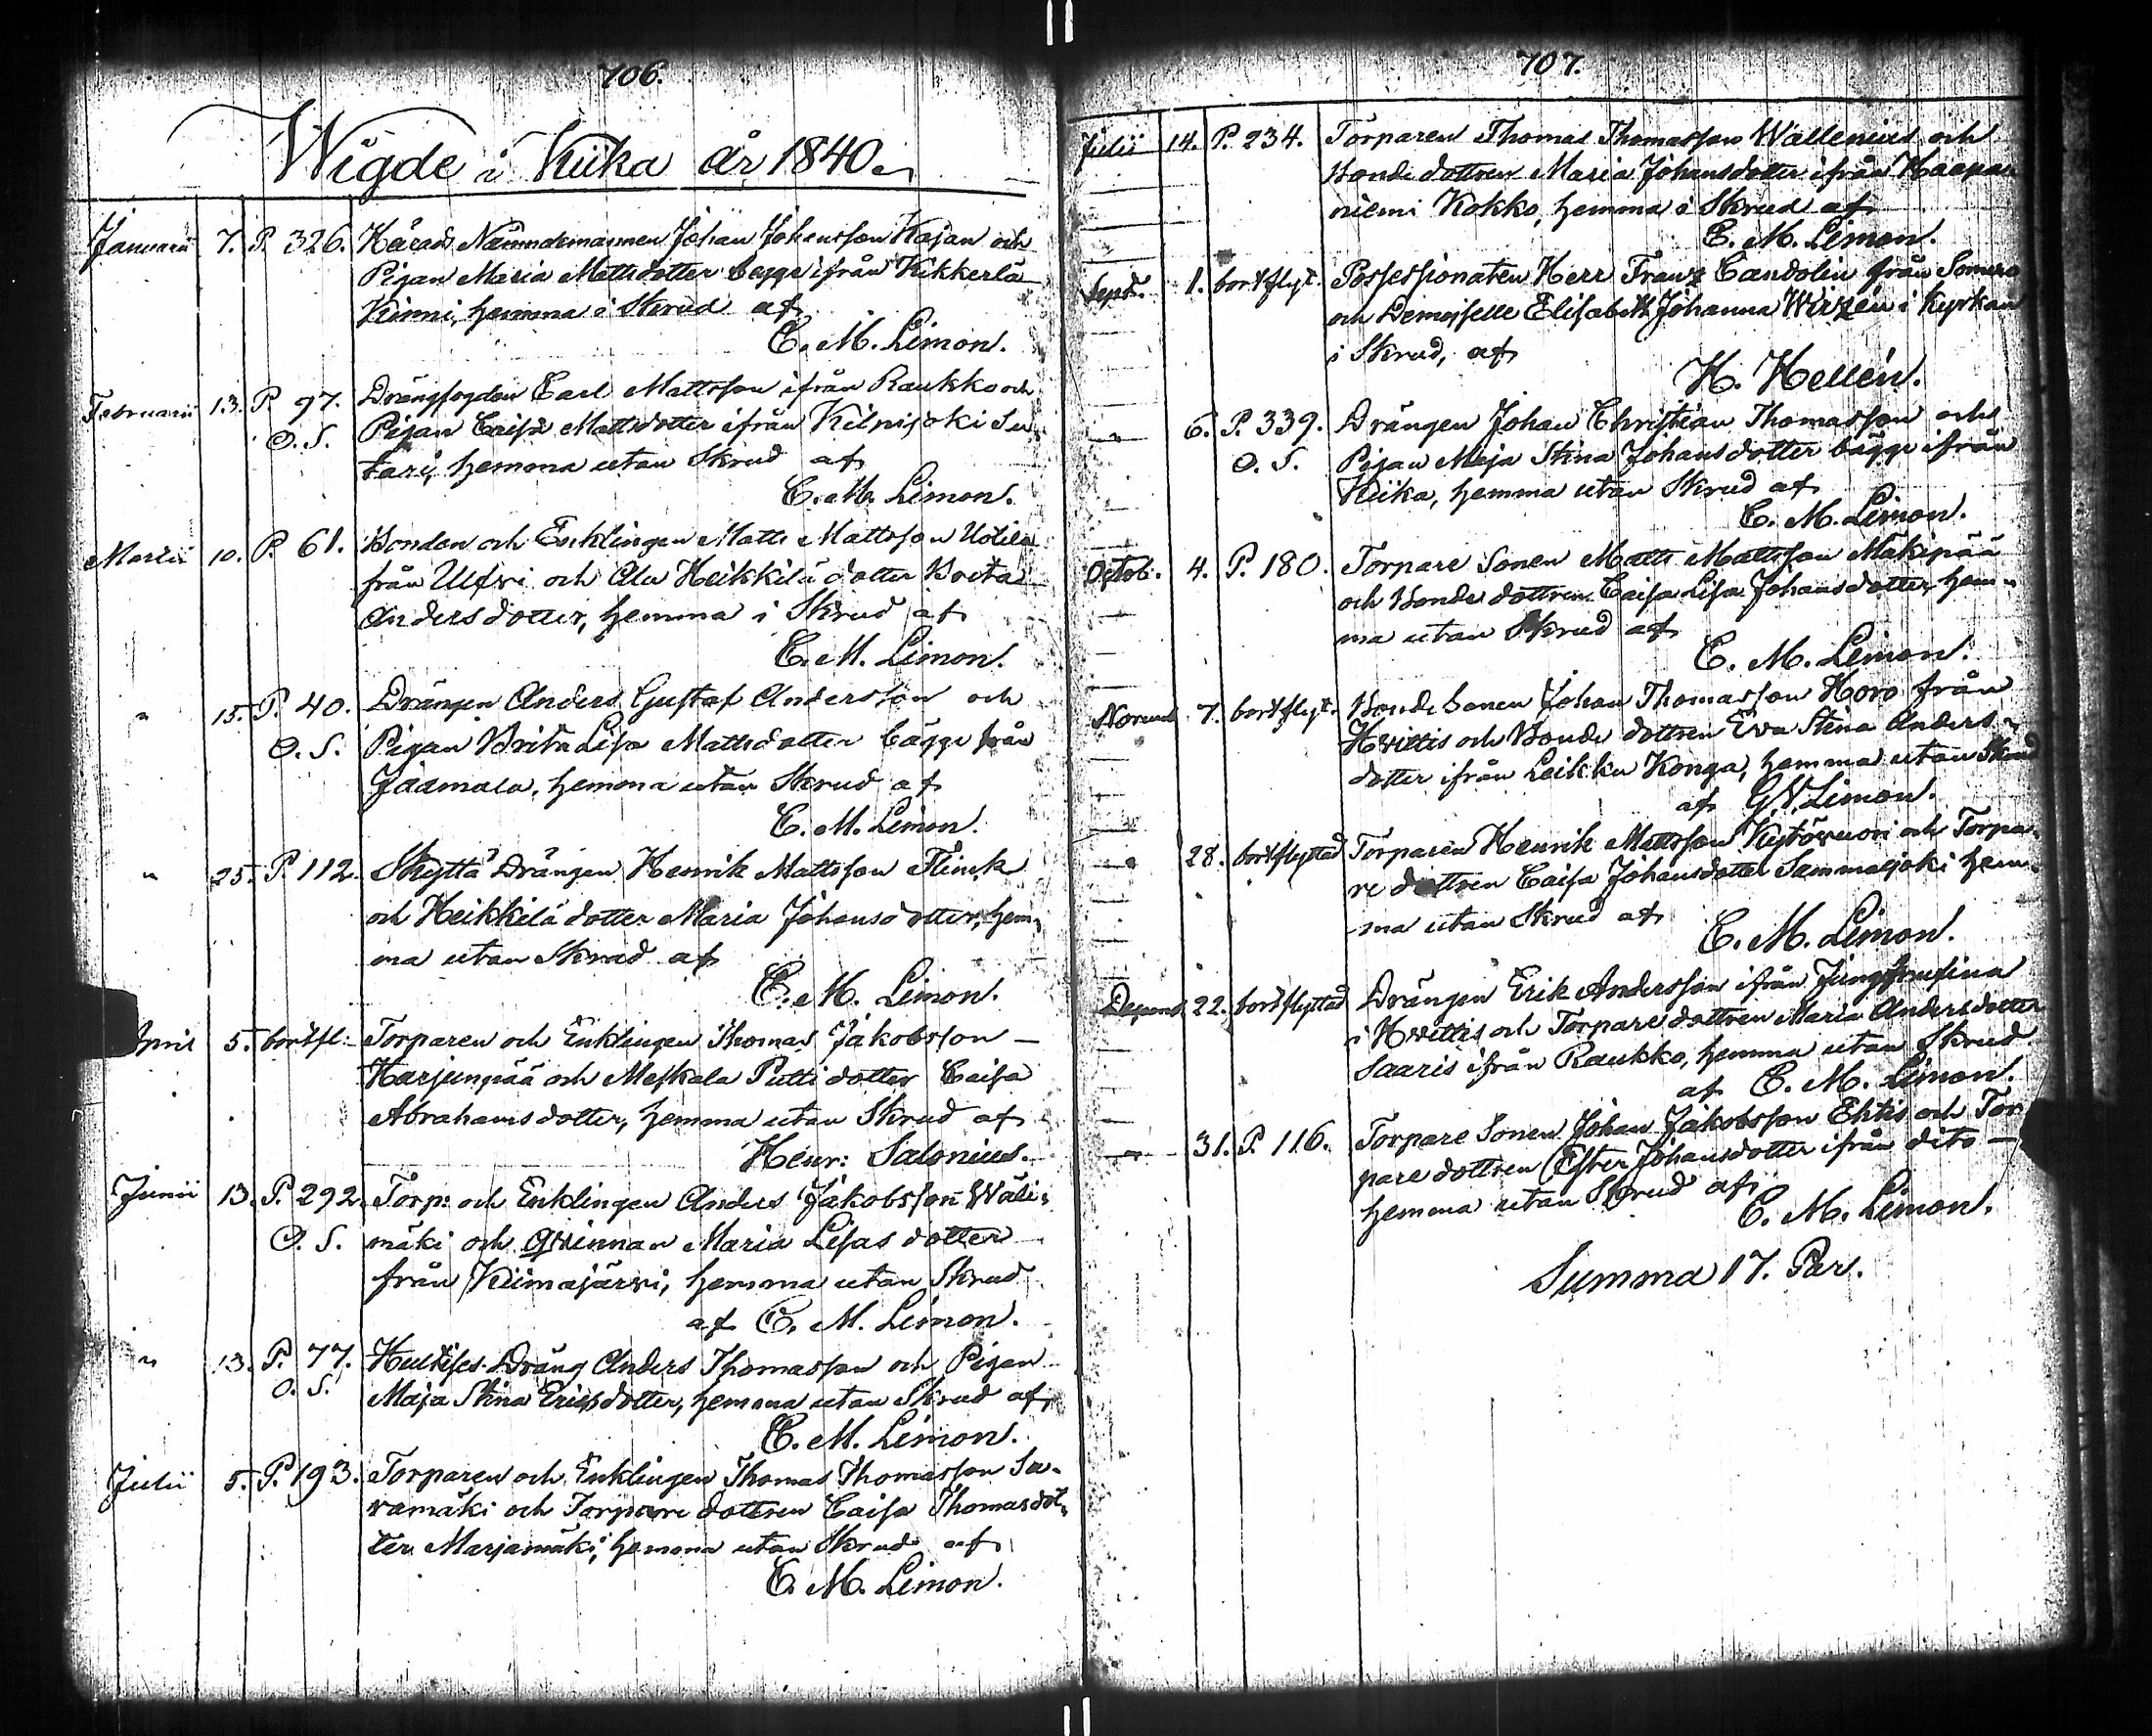 706.
Wigde i Kiika år 1840.
Januarii 7. P. 326. Härads Nämndemannen Johan Johansson Kajan och
Pigan Maria Mattsdotter bägge ifrån Kikkerlä
Kinni, hemma i Skrud af
C. M. Limon.
Februarii 13. P. 97. Drängfogden Carl Mattsson ifrån Raukko och
O. S. Pigan Caisa Mattsdotter ifrån Kilpijoki Su
tari, hemma utan Skrud af
C. M. Limon.
Martii 10. P. 61. Bonden och Enklingen Matts Mattsson Uotila
från Ulfvi och Ala Heikkilä dotter Beata
Andersdotter, hemma i Skrud af
C. M. Limon.
" 15. P. 40. Drängen Anders Gustaf Andersson och
O. S. Pigan Brita Lisa Mattsdotter bägge från
Jaamala, hemma utan Skrud af
C. M. Limon.
" 25. P. 112. Skyttä Drängen Henrik Mattsson Flinck
och Heikkilä dotter Maria Johansdotter, hem,
ma utan Skrud af
C. M. Limon.
April 5. bortfl:- Torparen och Enklingen Thomas Jakobsson –
Harjunpää och Meskala Putti dotter Caisa
Abrahamsdotter, hemma utan Skrud af
Henr: Salonius.
Junii 13. P. 292. Torp: och Enklingen Anders Jakobsson Wäli-
O. S. mäki och Qvinnan Maria Lisas dotter
från Kiimajärvi, hemma utan Skrud
af C. M. Limon.
" 13. P. 77. Dräng Anders Thomasson och Pigan
O. S. Maja Stina Ericsdotter, hemma utan Skrud af
C. M. Limon.
Julii 5. P. 193. Torparen och Enklingen Thomas Thomasson Sa-
vamäki och Torpare dottren Caisa Thomasdot,
ter Marjamäki, hemma utan Skrud af
C. M. Limon.
707.
Julii 14. P. 234. Torparen Thomas Thomasson Wallenius och
Bonde dottren Maria Johansdotter ifrån Haapa
niemi Kokko, hemma i Skrud af
C. M. Limon.
Sept. 1. bortflyt. Possessionaten Herr Franz Candolin från Somero
och Demoiselle Elisabeth Johanna Wirzén i Kyrkan
i Skrud, af
H. Hellén.
" 6. P. 339. Drängen Johan Christian Thomasson och
O. S. Pigan Maja Stina Johansdotter bägge ifrån
Kiika, hemma utan Skrud af
C. M. Limon.
Octob. 4. P. 180. Torpare Sonen Matts Mattsson Mäkipää
och Bonde dottren Caisa Lisa Johansdotter, hem-
ma utan Skrud af
C. M. Limon.
Novemb 7. bortflyt. Bonde Sonen Johan Thomasson Horo från
Hvittis och Bonde dottren Eva Stina Anders-
dotter ifrån Leikku Konga, hemma utan Skrud
af G V Limon.
" 28. bortflyttad Torparen Henrik Mattsson Kytövuori och Torpa-
re dottren Caisa Johansdotter Sammaljoki hem-
ma utan Skrud af
C. M. Limon.
Decemb. 22. bortflyttad Drängen Erik Andersson ifrån
i Hvittis och Torpare dottren Maria Andersdotter
Saaris ifrån Raukko, hemma utan Skrud
af C. M. Limon.
" 31. P. 116. Torpare Sonen Johan Jakobsson Ehtis och Tor
pare dottren Ester Johansdotter ifrån dito –
hemma utan Skrud af
C. M. Limon.
Summa 17. Par.